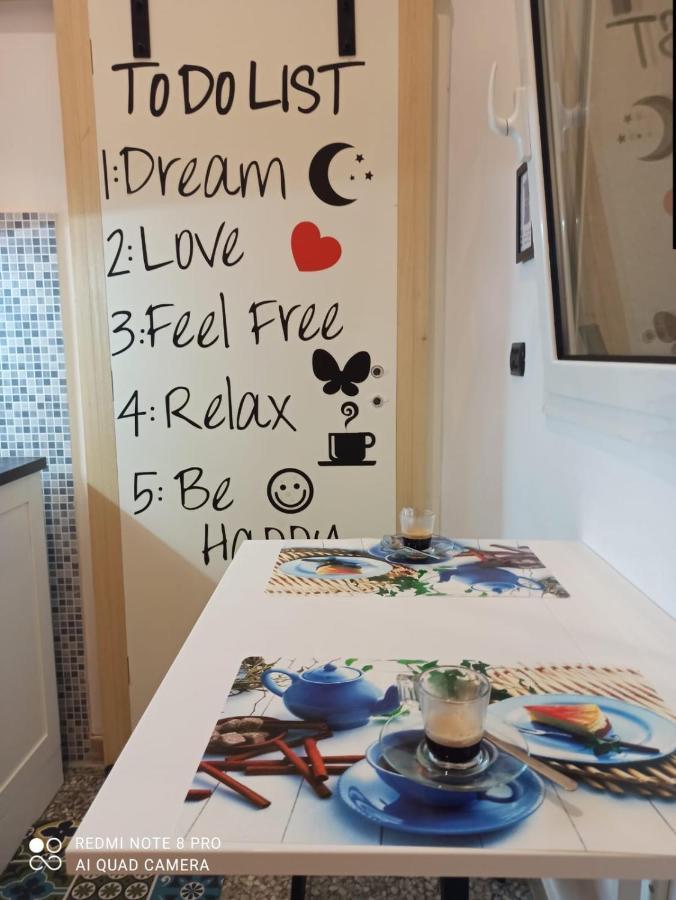 To Do LIST
1: Dream
2: Love
3: Feel Free
4: Relax
5: Be
Happy
REDMI NOTE 8 PRO
AI QUAD CAMERA